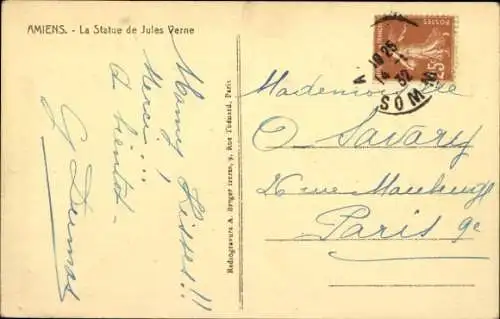 AMIENS. - La Statue de Jules Verne
Many Kisses!!
Merci!!!
A bientot -
G Dumas
Radiogravure A. Breger frères, 9, Rue Thénard, Paris
POSTES
25
19 25
32
SOMME
Mademoiselle
O Savary
26 rue Maubeuge
Paris 9e